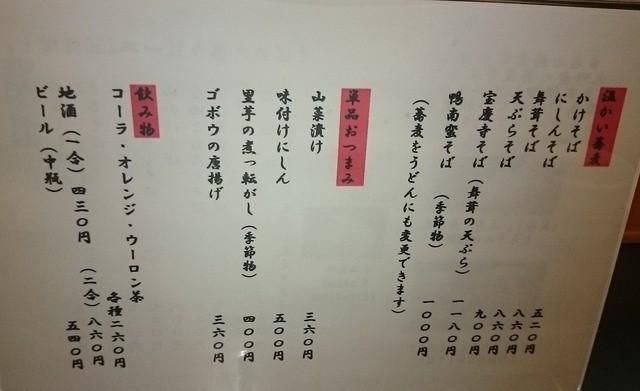 温かい蕎麦
かけそば 五二〇円
にしんそば 八六〇円
舞茸そば 八六〇円
天ぷらそば 九〇〇円
宝慶寺そば(舞茸の天ぷら) 一一八〇円
鴨南蛮そば (季節物) 一〇〇〇円
(蕎麦をうどんにも変更できます)
単品おつまみ
山菜漬け 三六〇円
味付けにしん 五〇〇円
里芋の煮っ転がし(季節物) 四〇〇円
ゴボウの唐揚げ 三六〇円
飲み物
コーラ・オレンジ・ウーロン茶 各種二六〇円
地酒(一合)四三〇円 (二合)八六〇円
ビール(中瓶) 五四〇円